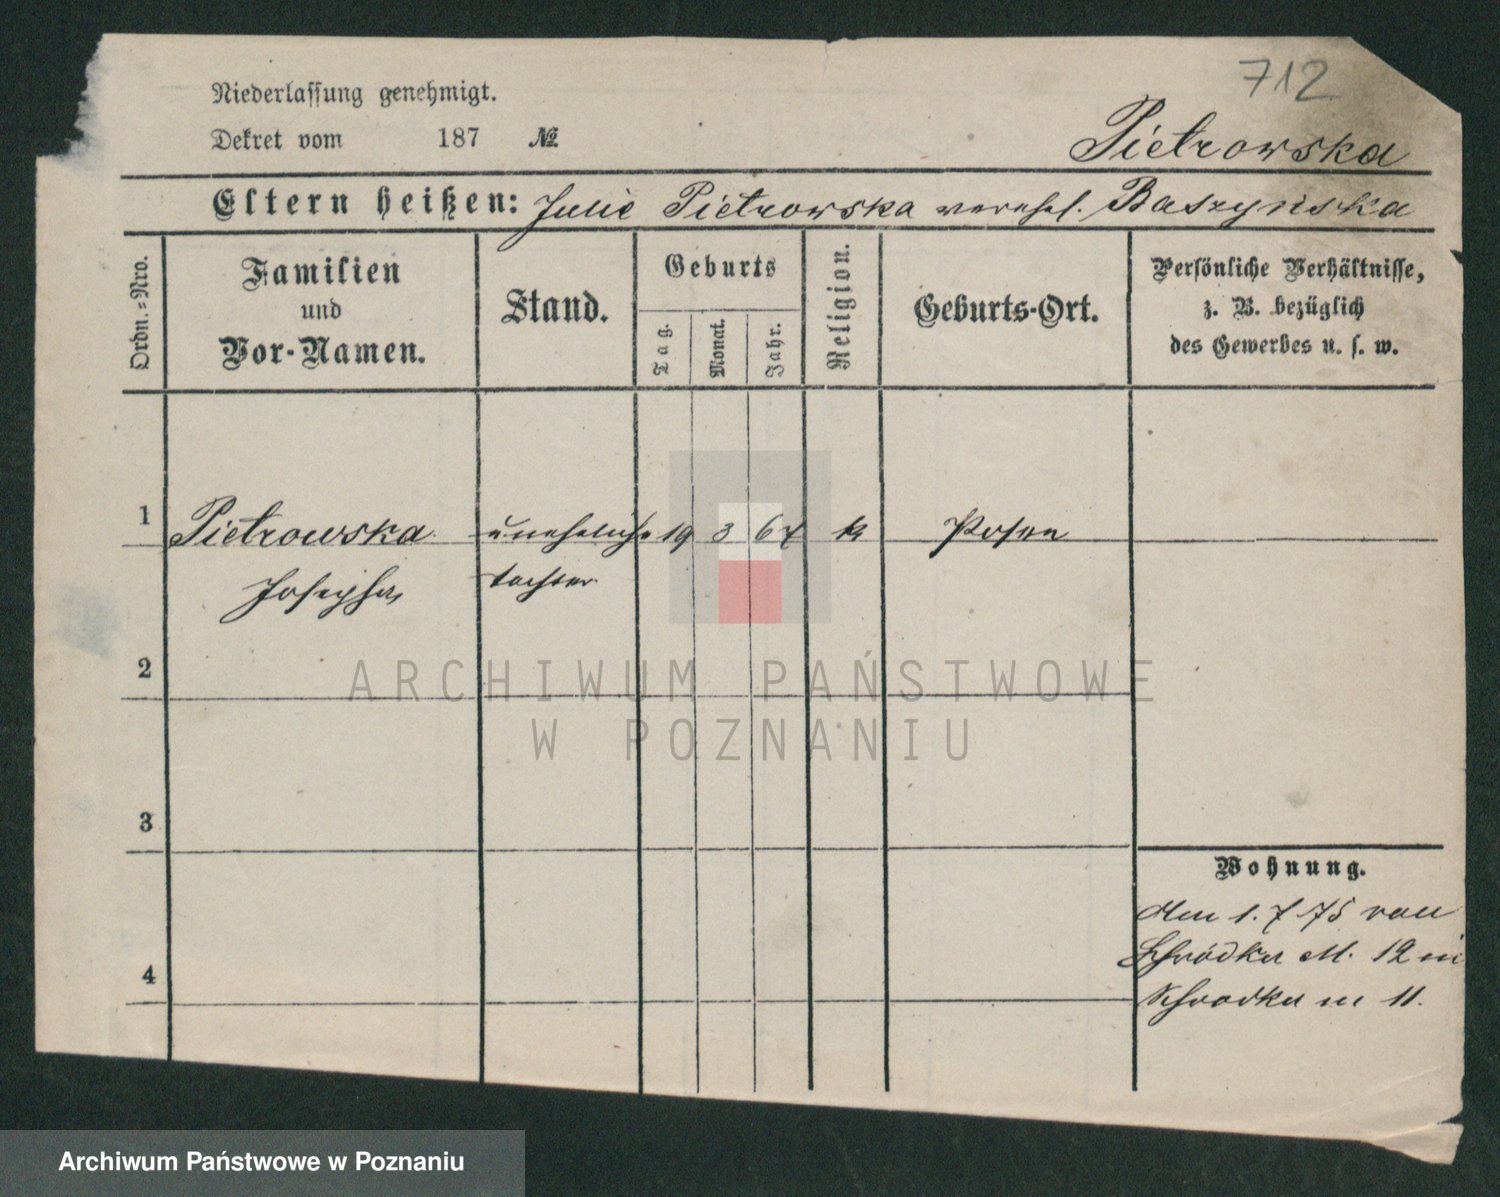 712
Niederlassung genehmigt.
Dekret vom 187 №
Pietrowska
Eltern heißen: Julie Pietrowska verehel. Baszyńska
Ordn.-Nro.
Familien
und
Vor-Namen.
Stand.
Geburts
Tag.
Monat.
Jahr.
Religion.
Geburts-Ort.
Persönliche Verhältnisse,
z. B. bezüglich
des Gewerbes u. s. w.
1 Pietrowska uneheliche 19 3 67 k Posen
Josepha tochter
2
ARCHIWUM PAŃSTWOWE
W POZNANIU
3
Wohnung.
1. 7 75 von
Schrodka M. 12 in
4
Schrodka 11.
Archiwum Państwowe w Poznaniu